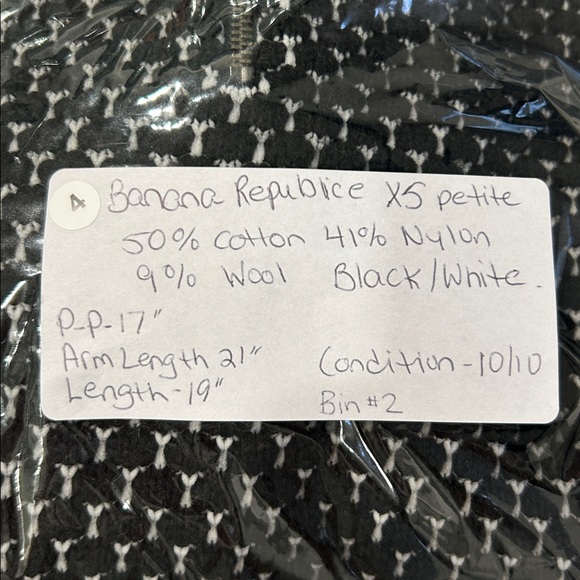 A
Banana Republice XS petite
50% Cotton 41% Nylon
9% Wool Black/White.
P-P-17"
Arm Length 21"
Length-19"
Condition-10/10
Bin #2